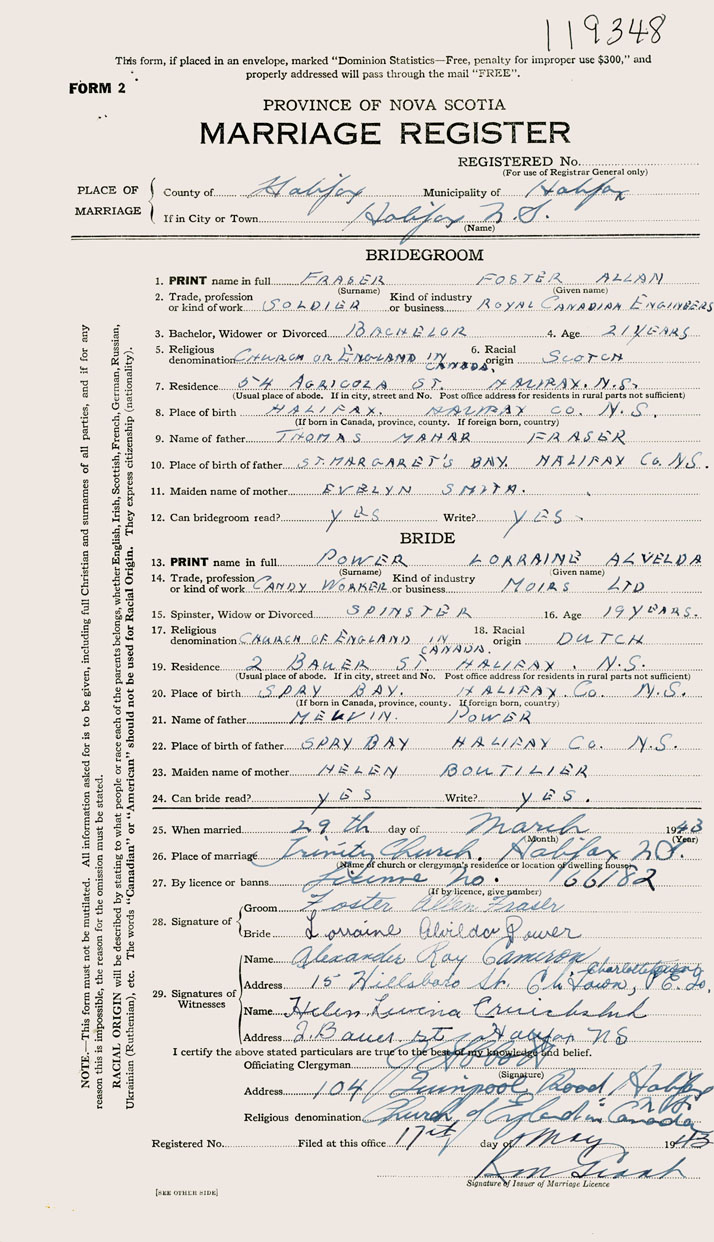 119348
This form, if placed in an envelope, marked "Dominion Statistics—Free, penalty for improper use $300," and
properly addressed will pass through the mail "FREE".
FORM 2
PROVINCE OF NOVA SCOTIA
MARRIAGE REGISTER
REGISTERED No.
(For use of Registrar General only)
PLACE OF MARRIAGE
County of Halifax Municipality of Halifax
If in City or Town Halifax N.S.
(Name)
BRIDEGROOM
1. PRINT name in full FRASER FOSTER ALLAN
(Surname) (Given name)
2. Trade, profession or kind of work SOLDIER Kind of industry or business ROYAL CANADIAN ENGINEERS
3. Bachelor, Widower or Divorced BACHELOR 4. Age 21 YEARS
5. Religious denomination CHURCH OF ENGLAND IN CANADA. 6. Racial origin SCOTCH
7. Residence 54 AGRICOLA ST. HALIFAX. N.S.
(Usual place of abode. If in city, street and No. Post office address for residents in rural parts not sufficient)
8. Place of birth HALIFAX. HALIFAX CO. N.S.
(If born in Canada, province, county. If foreign born, country)
9. Name of father THOMAS MAHAR FRASER
10. Place of birth of father ST. MARGARET'S BAY. HALIFAX CO. N.S.
11. Maiden name of mother EVELYN SMITH.
12. Can bridegroom read? YES Write? YES
BRIDE
13. PRINT name in full POWER LORRAINE ALVELDA
(Surname) (Given name)
14. Trade, profession or kind of work CANDY WORKER Kind of industry or business MOIRS LTD
15. Spinster, Widow or Divorced SPINSTER 16. Age 19 YEARS.
17. Religious denomination CHURCH OF ENGLAND IN CANADA. 18. Racial origin DUTCH
19. Residence 2 BAUER ST. HALIFAX. N.S.
(Usual place of abode. If in city, street and No. Post office address for residents in rural parts not sufficient)
20. Place of birth SPRY BAY. HALIFAX. CO. N.S.
(If born in Canada, province, county. If foreign born, country)
21. Name of father MELVIN. POWER
22. Place of birth of father SPRY BAY HALIFAX CO. N.S.
23. Maiden name of mother HELEN BOUTILIER
24. Can bride read? YES Write? YES.
25. When married 29th day of March 1943
(Month) (Year)
26. Place of marriage Trinity Church. Halifax N.S.
(Name of church or clergyman's residence or location of dwelling house)
27. By licence or banns License No. 66182
(If by licence, give number)
28. Signature of
Groom Foster Allen Fraser
Bride Lorraine Alvelda Power
29. Signatures of Witnesses
Name Alexander Ray Cameron
Address 15 Hillsboro St. Ch Town, Charlottetown P.E.I.
Name Helen
Address 2 Bauer St Halifax NS
I certify the above stated particulars are true to the best of my knowledge and belief.
Officiating Clergyman
(Signature)
Address 104 Quinpool Road Halifax N.S.
Religious denomination Church of England in Canada
Registered No. Filed at this office 17th day of May 1943
Signature of Issuer of Marriage Licence
[SEE OTHER SIDE]
NOTE.—This form must not be mutilated. All information asked for is to be given, including full Christian and surnames of all parties, and if for any
reason this is impossible, the reason for the omission must be stated.
RACIAL ORIGIN will be described by stating to what people or race each of the parents belongs, whether English, Irish, Scottish, French, German, Russian,
Ukrainian (Ruthenian), etc. The words "Canadian" or "American" should not be used for Racial Origin. They express citizenship (nationality).